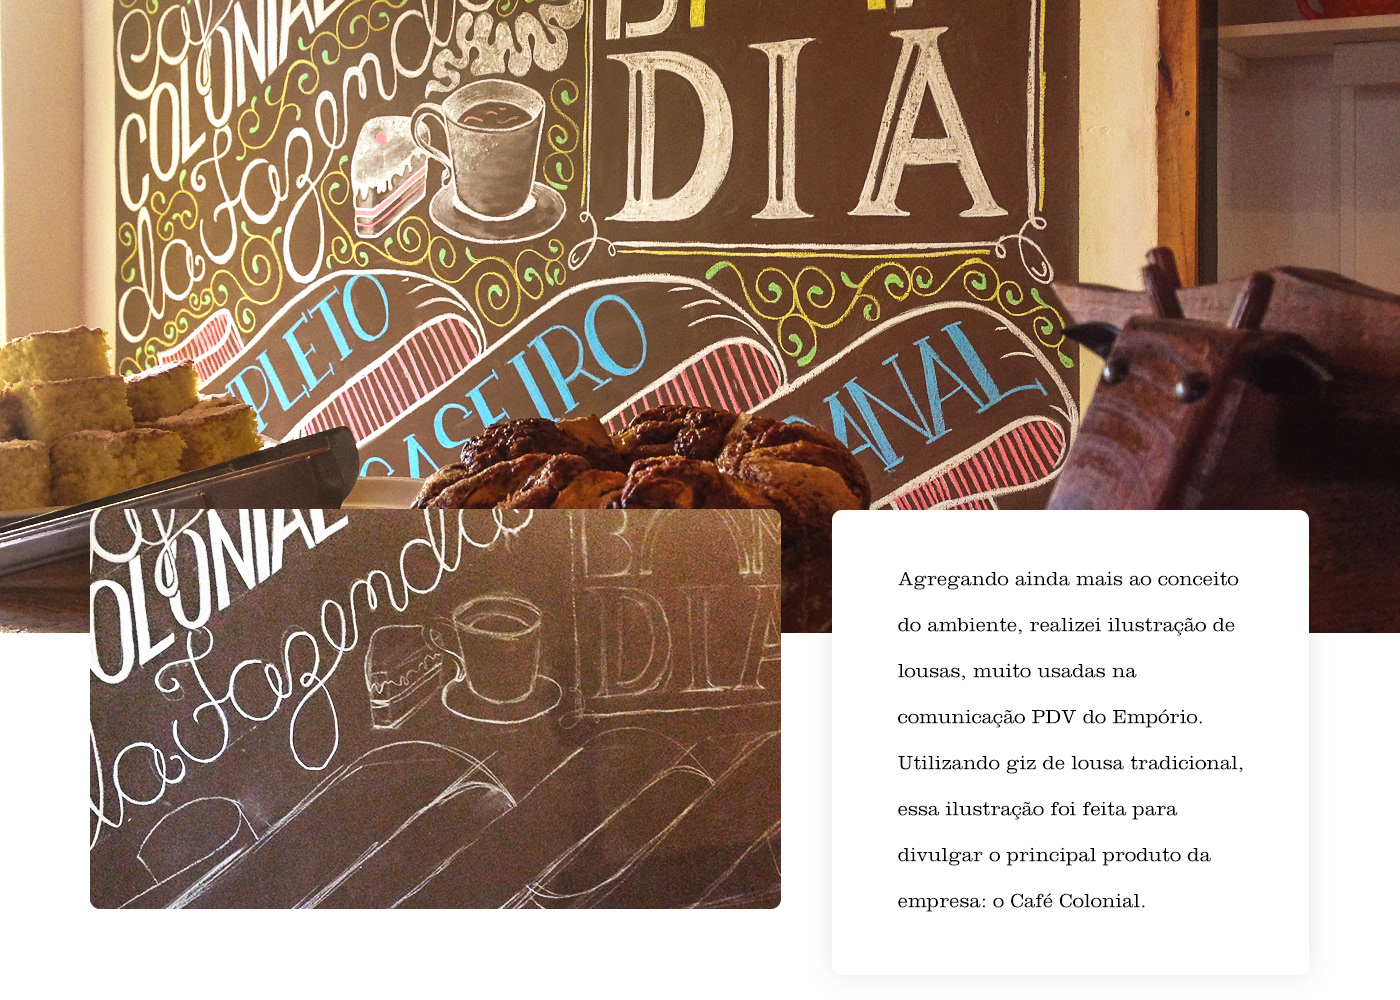 Café
COLONIAL
da Fazenda
DIA
CASEIRO
Café
COLONIAL
da Fazenda
DIA
Agregando ainda mais ao conceito
do ambiente, realizei ilustração de
lousas, muito usadas na
comunicação PDV do Empório.
Utilizando giz de lousa tradicional,
essa ilustração foi feita para
divulgar o principal produto da
empresa: o Café Colonial.